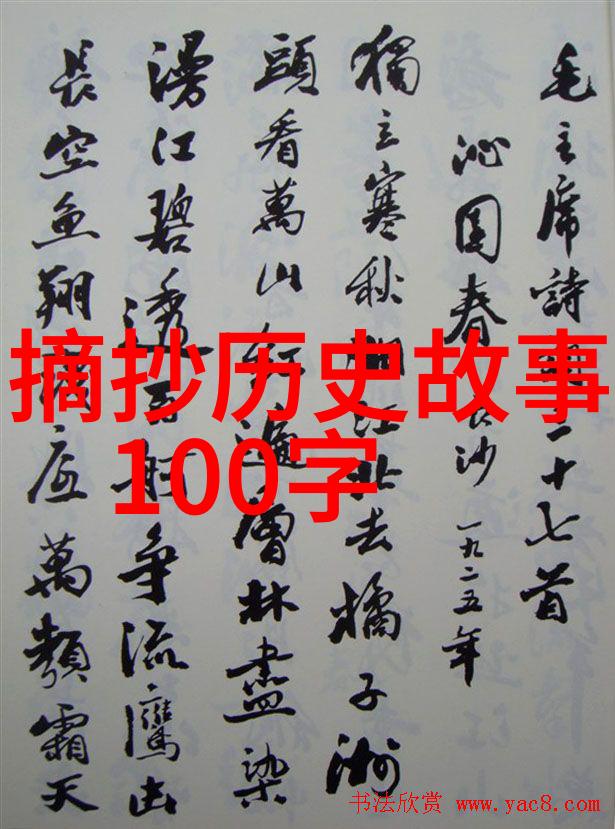 毛主席詩十七首
沁園春 長沙 一九二五年
獨立寒秋湘江北去橘子洲
頭看萬山紅遍層林盡染
漫江碧透百舸爭流鷹击
長空魚翔淺底萬類霜天
摘抄历史故事
100字
书法欣赏 www.yac8.com